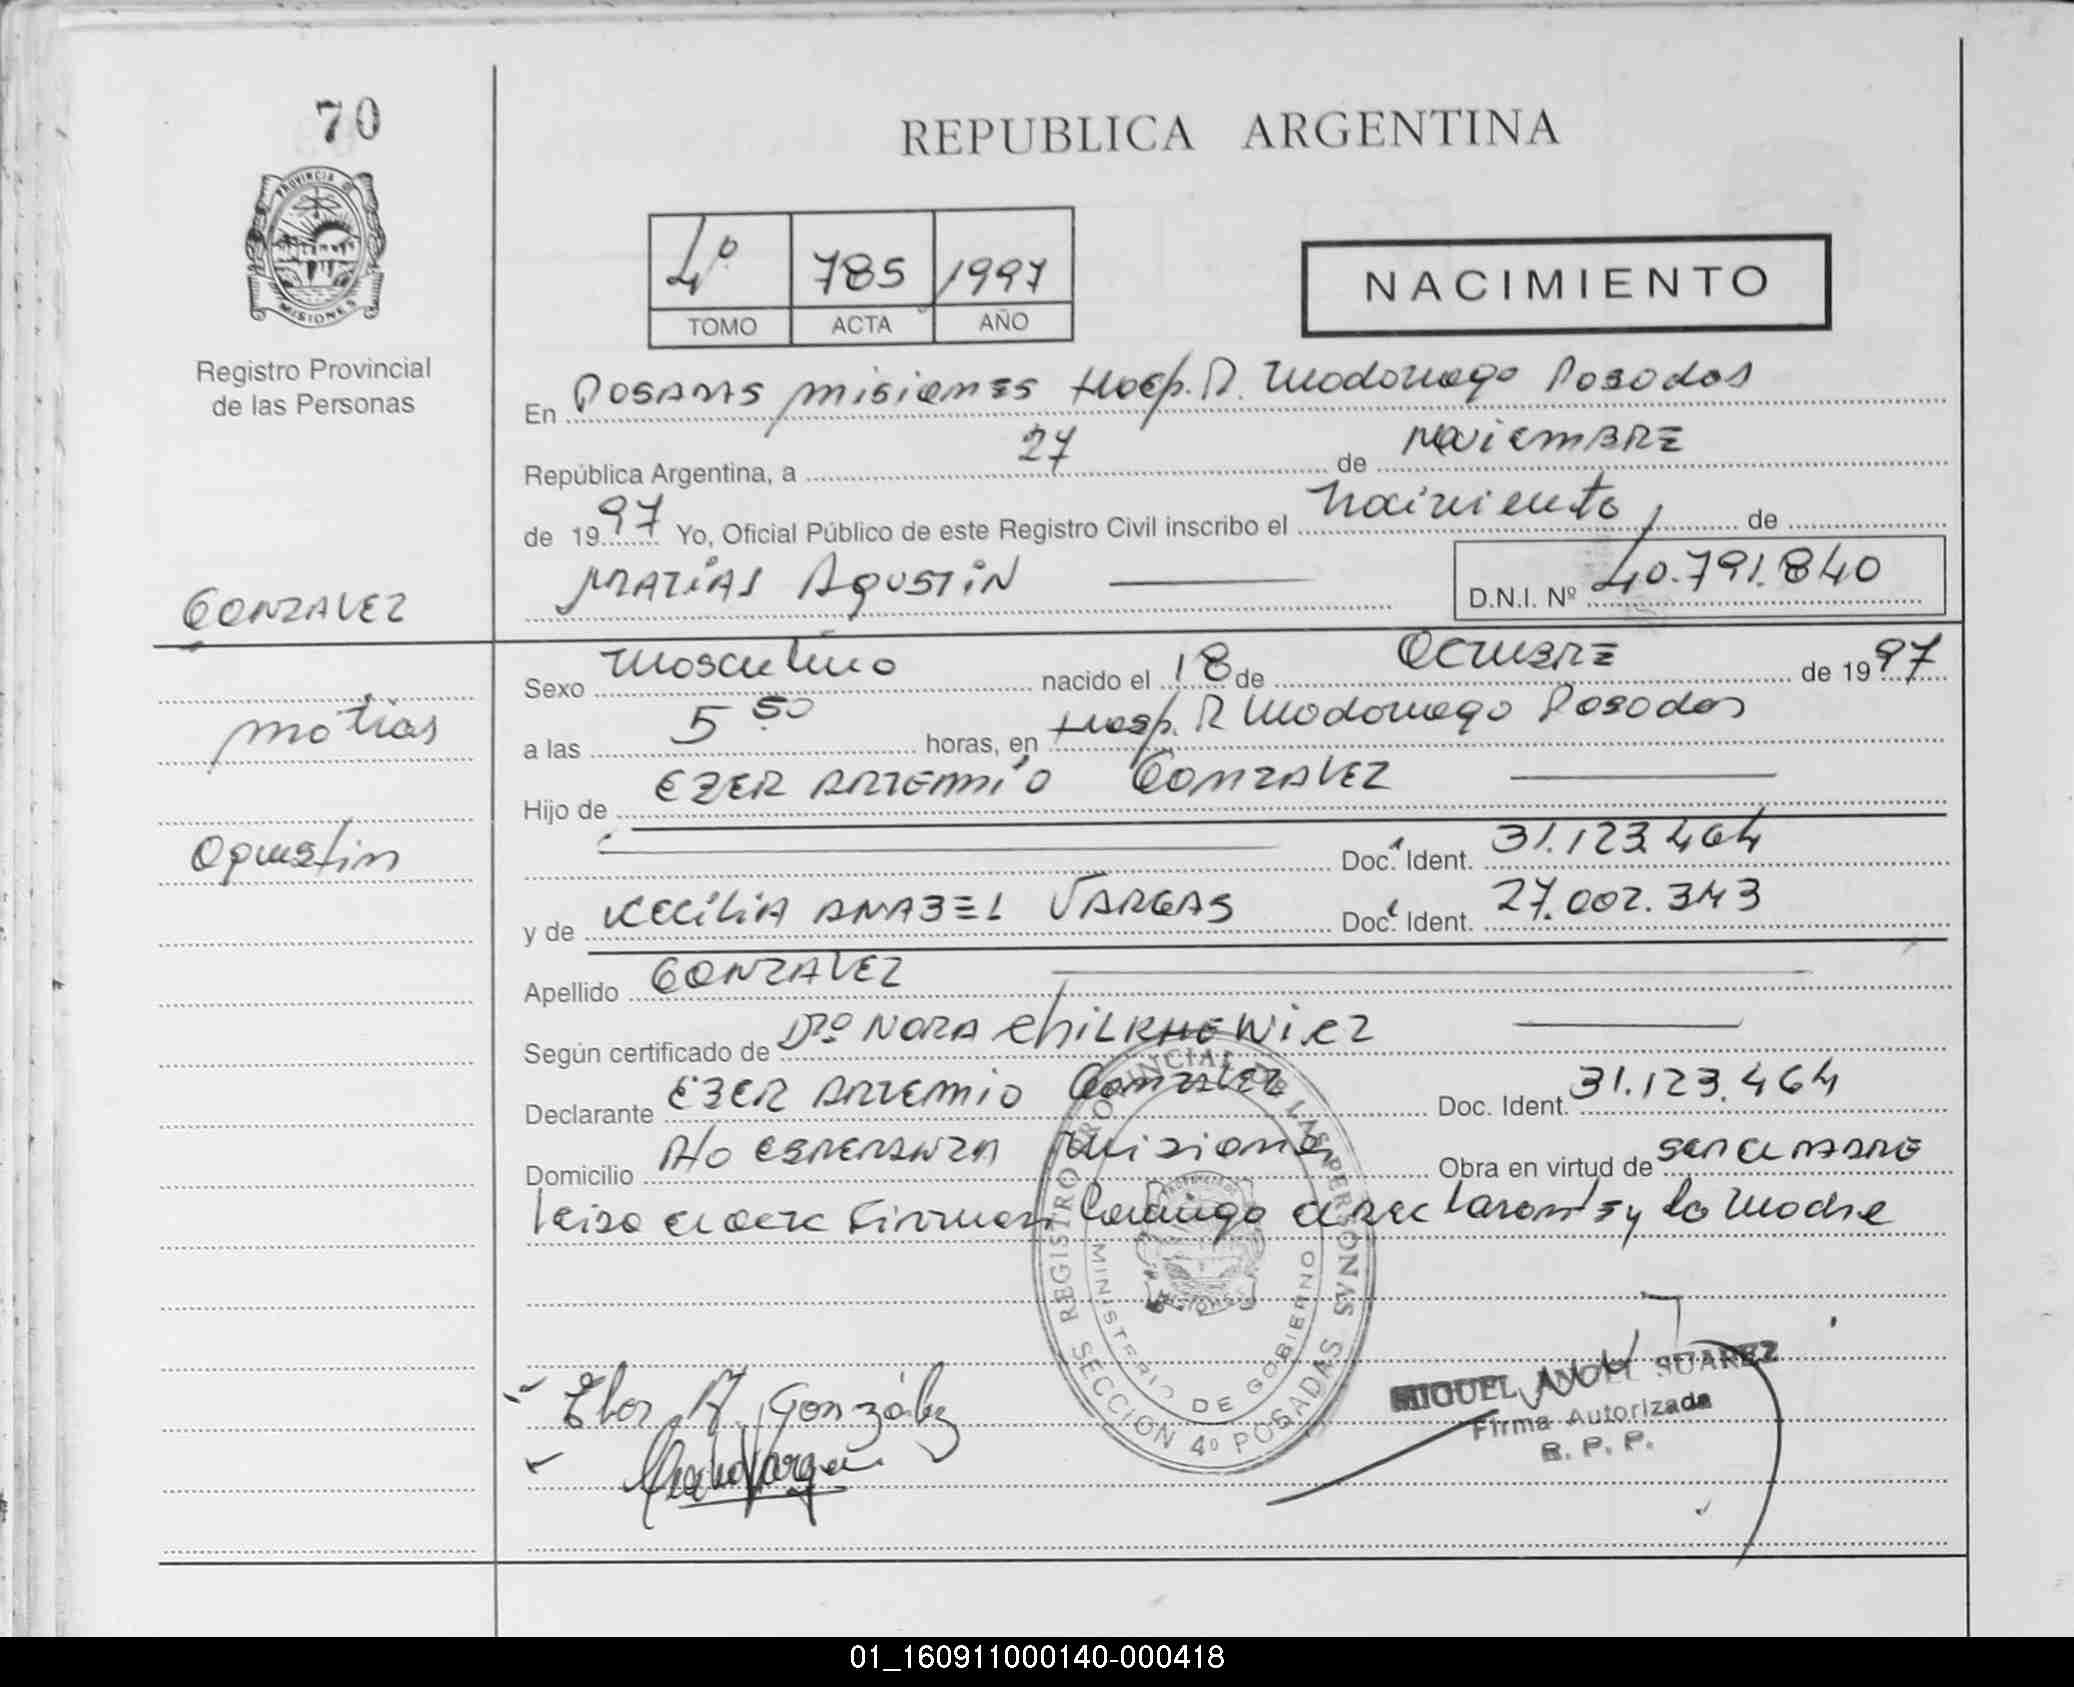 70
REPUBLICA ARGENTINA
PROVINCIA DE
MISIONES
Registro Provincial
de las Personas
4º 785 1997
TOMO ACTA AÑO
NACIMIENTO
En Posadas misiones Hosp. R. Madariaga Posadas
República Argentina, a 27 de Noviembre
de 1997 Yo, Oficial Público de este Registro Civil inscribo el nacimiento de
MATÍAS AGUSTÍN D.N.I. Nº 40.791.840
GONZALEZ
Sexo masculino nacido el 18 de Octubre de 1997
Matias
a las 5 50 horas, en Hosp. R Madariaga Posadas
Hijo de EZER ARTEMIO GONZALEZ
Agustin
Doc. Ident. 31.123.464
y de CECILIA ANABEL VARGAS Doc. Ident. 27.002.343
Apellido GONZALEZ
Según certificado de Drª NORA
Declarante EZER ARTEMIO GONZALEZ Doc. Ident. 31.123.464
Domicilio Pto ESPERANZA Misiones Obra en virtud de ser el padre
leida el acta Firman Conmigo el declarante y la Madre
REGISTRO PROVINCIAL DE LAS PERSONAS
MINISTERIO DE GOBIERNO
SECCION 4º POSADAS
MIGUEL ANGEL SUAREZ
Firma Autorizada
R. P. P.
A. González
Vargas
01_160911000140-000418